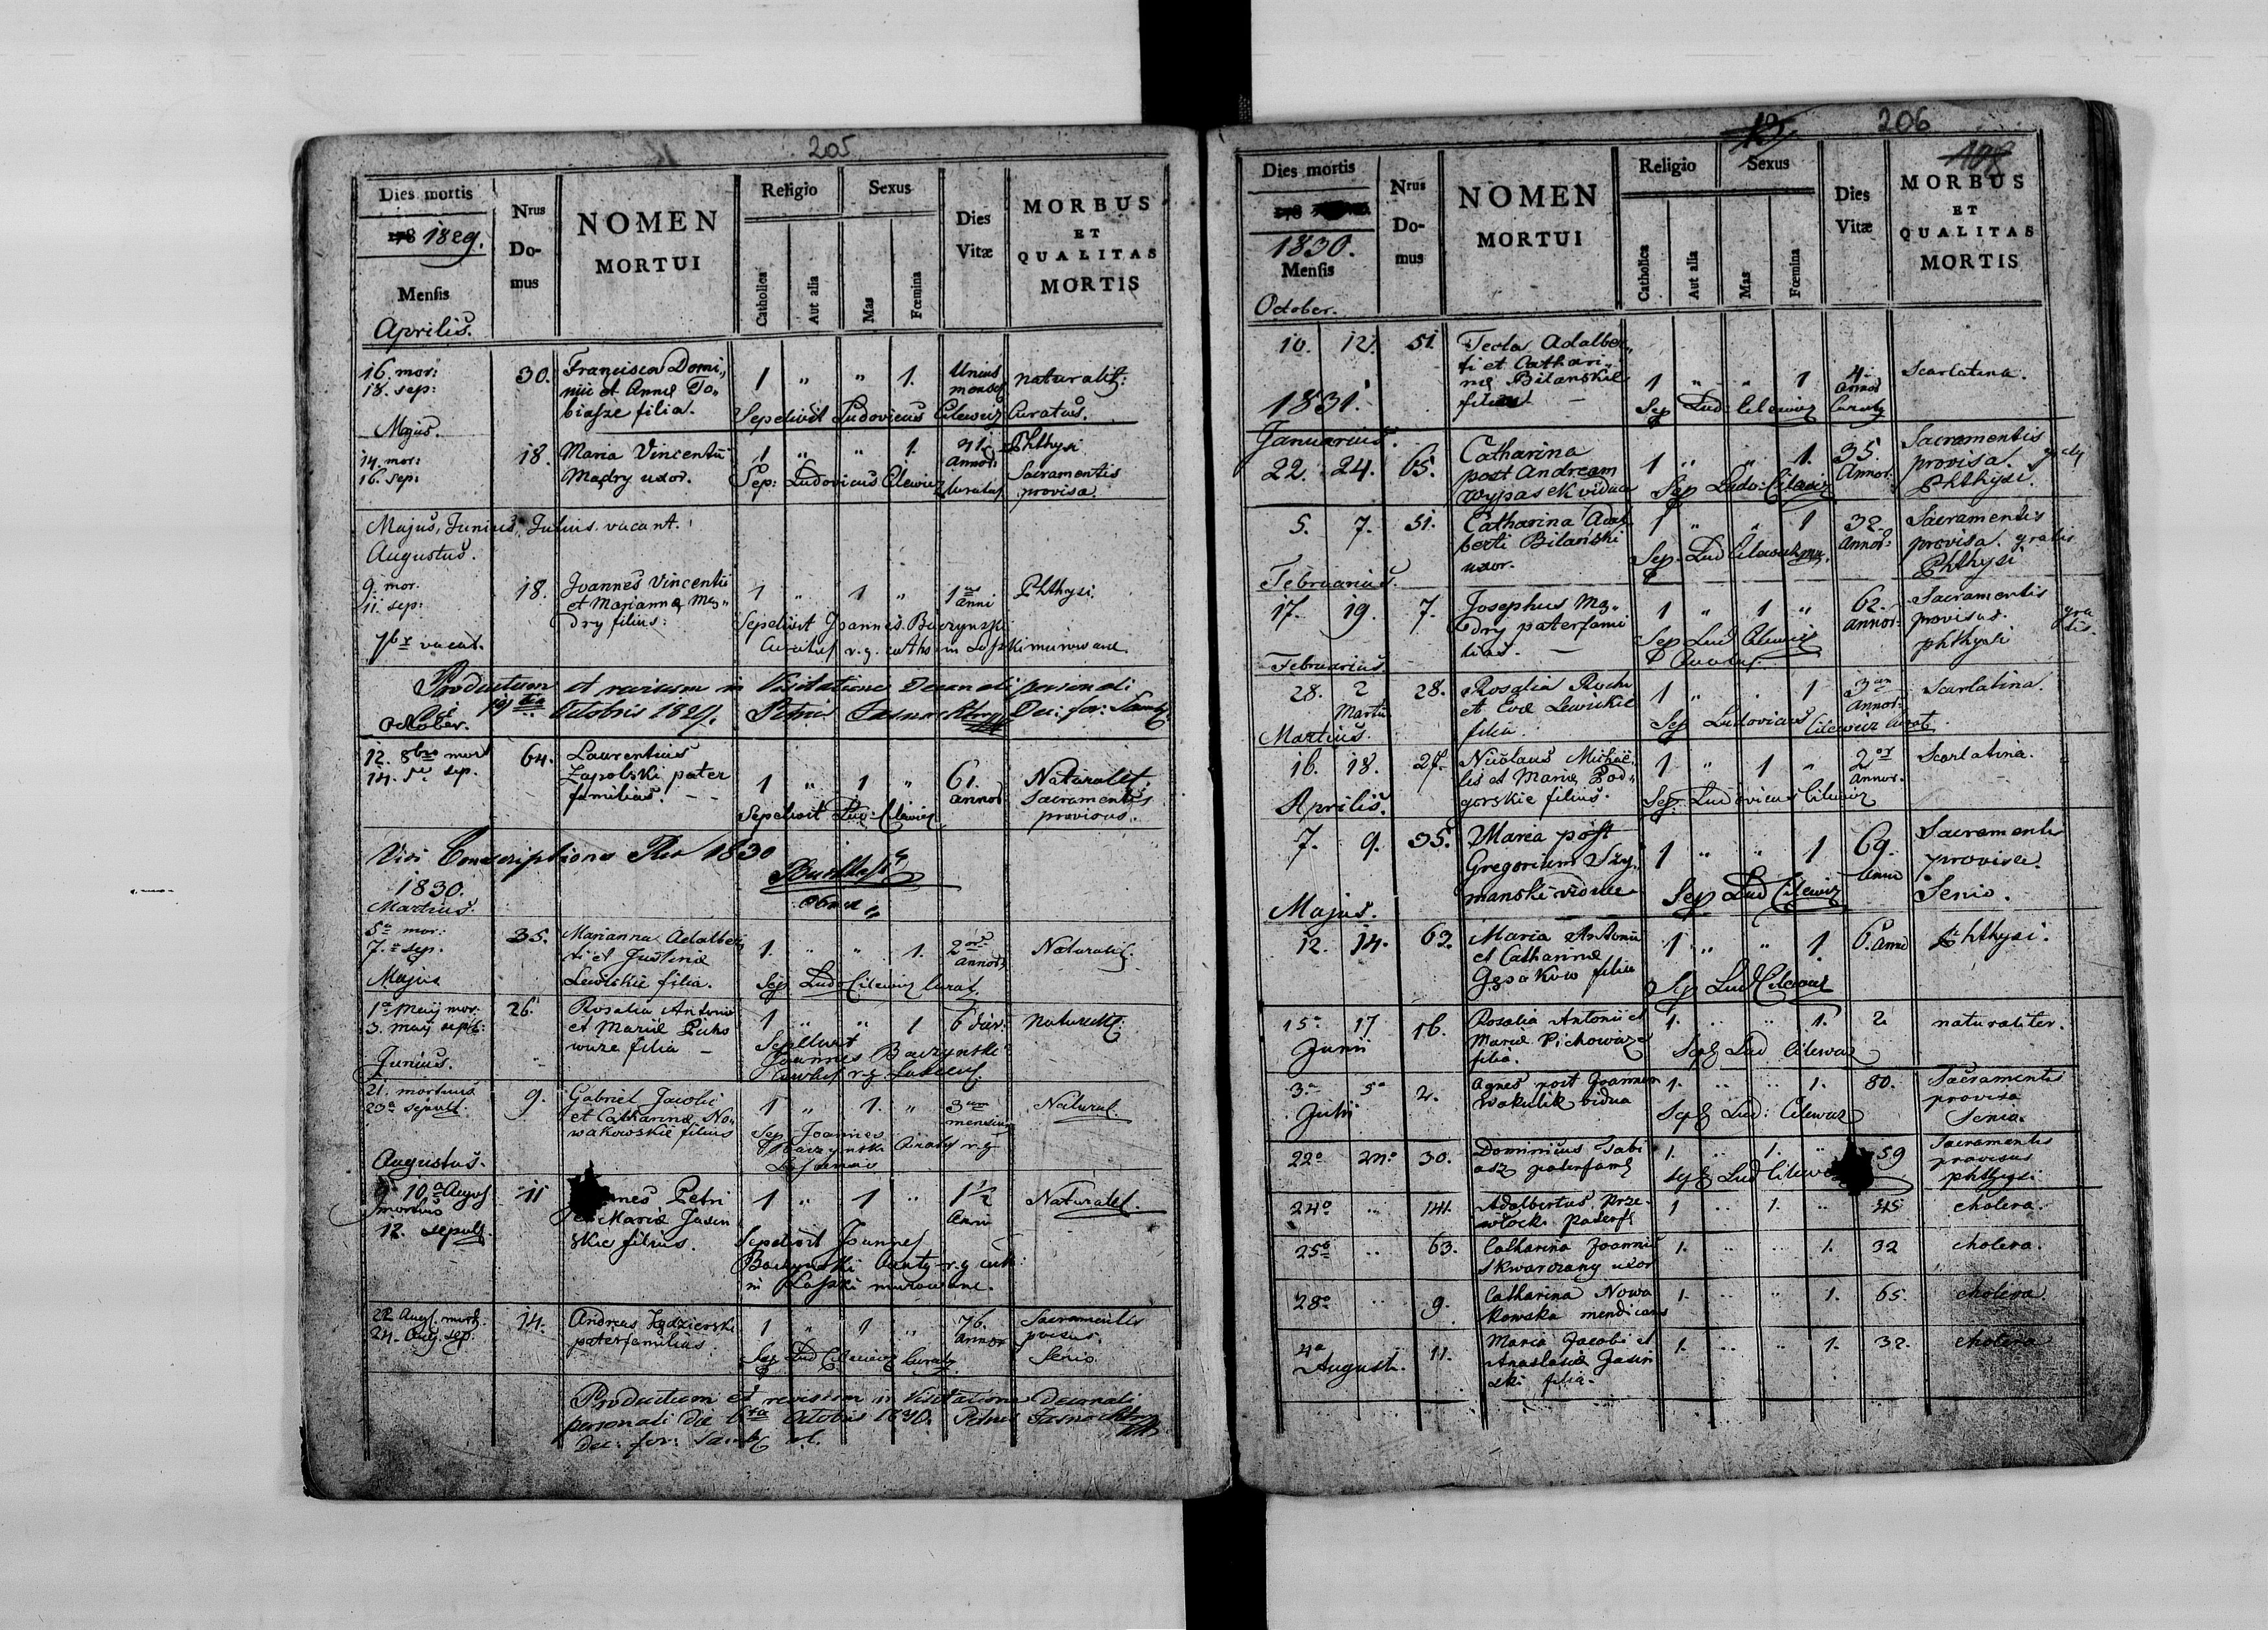 205
Dies mortis
178 1829.
Mensis
Aprilis.
Nrus
Do-
mus
NOMEN
MORTUI
Religio
Catholica
Aut alia
Sexus
Mas
Fœmina
Dies
Vitæ
MORBUS
ET
QUALITAS
MORTIS
16. mor: 30. Francisca Domi„ 1 „ „ 1. Unius naturalit:
18. sep: nici et Annæ To„ mensis
biasze filia. Sepelivit Ludovicus Cilewicz Curatus.
Majus.
14. mor: 18. Maria Vincentii 1 „ „ 1. Phthysi
16. sep: Mądry uxor. Sep: Ludovicus Cilewicz Curatus annor: Sacramentis
provisa
Majus, Junius, Julius vacant.
Augustus.
9. mor. 18. Joannes Vincentii 1 „ 1 „ 1 anni Phthysi
11. sep: et Marianna Mą„
dry filius: Sepelivit Joannes Baczynski
7br vacat. Curatus r. g. cath in Laszki murowane.
Productum et revisum in Visitatione Decanali personali
19 Octobris 1829. Petrus
October.
12. 8bris mor 64. Laurentius
14. sep. Zapolski pater 1 „ 1 „ 61. Naturalit.
familias. annor Sacramentis
Sepelivit Lud: Cilewicz provisus.
Vidi Conscriptione Pro 1830
1830.
Martius.
5a mor: 35. Marianna Adalber 1. „ „ 1. 2 annor Naturalit.
7. sep. ti et Justina
Lewickie filia. Sep. Lud Cilewicz Curat.
Majus
1a Maij mor. 26. Rosalia Antonii 1 „ „ 1 6 dier: naturalit:
3. maij sept: et Mariæ Picho
wicze filia Sepelivit
Joannes Baczynski
Junius.
21. mortuus 9. Gabriel Jacobi 1 „ 1. „ 3 Natural.
23a sepult. et Catharina No„ mensium
wakowskie filius Sep Joannes
Baczynski Curatus r. g.
Augustus.
10a Augus 11 Petri 1 „ 1 „ 1 1/2 Naturalit.
mortuus et Mariæ Jasin anni
12. sepult. skie filius. Sepelivit Joannes
Baczynski r. g. cath
in Laszki murowane.
22 Aug. mort. 14. Andreas Zędzierski 1 „ 1 „ 76. Sacramentis
24. Aug. sep: paterfamilias annor
Sep Lud Cilewicz Curat. Senio
Productum et revisum in Visitatione Decanali
personali die 6ta Octobris 1830. Petrus
Dec: for: Samb
206
Dies mortis
178
1830.
Mensis
October.
Nrus
Do-
mus
NOMEN
MORTUI
Religio
Catholica
Aut alia
Sexus
Mas
Fœmina
Dies
Vitæ
MORBUS
ET
QUALITAS
MORTIS
10. 12. 51. Tecla Adalber„
ti et Cathari„
næ Bilanskie 1 „ „ 1 4. annor Scarlatina.
filia Sep Lud: Cilewicz
1831.
Januarius.
22. 24. 65. Catharina 1 „ „ 1. 35. Sacramentis
post Andream Annor. provisa.
Wypasek vidua Sep Ludo: Cilewicz Phthysi.
5. 7. 51. Catharina Adal 1 „ „ 1 32. Sacramentis
berti Bilański annor: provisa. gratis
uxor. Sep. Lud Cilewicz Phthysi
Februarius.
17. 19. 7. Josephus Mą„ 1 „ 1 „ 62. Sacramentis
dry paterfami annor: provisus. gra
lias. Sep Lud Cilewicz phthysi tis.
Februarius
28. 2 28. Rosalia Rochi 1 „ 1 3 Scarlatina.
Martii et Evæ Lewickie annor:
filia. Sep Ludovicus Cilewicz Curat.
Martius.
16. 18. 27. Nicolaus Michae 1 „ 1 „ 2 Scarlatina.
lis et Mariæ Pod„ annor.
gorskie filius. Sep: Ludovicus Cilewicz
Aprilis.
7. 9. 35. Maria post 1 „ „ 1 69. Sacramentis
Gregorium Szy„ anni provisa.
manski vidua Sep Lud Cilewicz Senio.
Majus.
12. 14. 63. Maria Antonii 1 „ „ 1. 6. anni Phthysi.
et Catharinæ
filia Sep Lud Cilewicz
15a 17 16. Rosalia Antonii et 1. „ „ 1. 2 naturaliter.
Junii Mariæ Pichowicze
filia. Sep Lud Cilewicz
3a 5a 2. Agnes post Joannem 1. „ „ 1. 80. Sacramentis
Julii Wakulik vidua Sep Lud: Cilewicz provisa
Senio.
22a 24a 30. Dominicus Tabi 1. „ 1. „ 59 Sacramentis
asz paterfam Sep Lud provisus
phthysi
24a „ 141. Adalbertus Prze- 1 „ 1. „ 45 cholera.
włocki paterf
25a „ 63. Catharina Joannis 1. „ „ 1. 32 cholera.
Skwarczany uxor
28a „ 9. Catharina Nowa 1. „ „ 1. 65. cholera
kowska mendicans
4a 11. Maria Jacobi et 1. „ „ 1. 32. cholera
Augusti. Anastasiæ Jasin
ski filia.